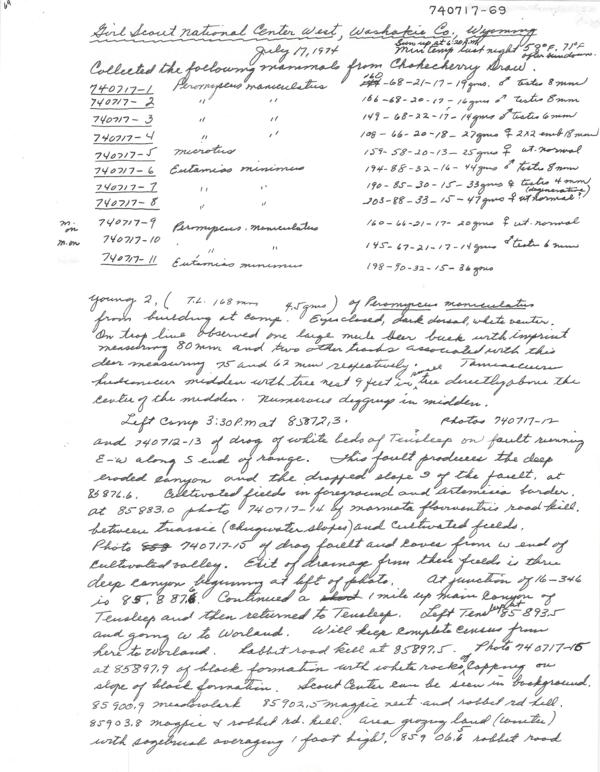 740717-69
Girl Scout National Center West, Washakie Co., Wyoming
July 17, 1974 Sun up at 6:20 A.M. Min temp last night 58°F. 71°F after sundown.
Collected the following mammals from Chokecherry Draw.
740717-1 Peromyscus maniculatus 160-68-21-17-19gms. ♂ testis 8mm
740717-2 " " 166-68-20-17-16gms ♂ testis 8mm
740717-3 " " 149-68-22-17-14gms ♂ testis 6mm
740717-4 " " 108-66-20-18-27gms ♀ 2X2 emb 18mm
740717-5 Microtus 159-58-20-13-25gms ♀ ut. normal
740717-6 Eutamias minimus 194-88-32-16-44gms ♂ testis 8mm
740717-7 " " 190-85-30-15-33gms testis 4mm (degenerative)
740717-8 " " 203-88-33-15-47gms ♀ ut normal?
740717-9 Peromyscus. maniculatus 160-66-21-17-20gms ♀ ut. normal
740717-10 " " 145-67-21-17-14gms ♂ testis 6mm
740717-11 Eutamias minimus 198-90-32-15-36gms
Young 2, (T.L. 168mm 4.5gms) of Peromyscus maniculatus
from building at camp. Eyes closed, dark dorsal, white venter.
On trap line observed one large mule deer buck with imprint
measuring 80mm and two other tracks associated with this
deer measuring 75 and 62mm respectively. Tamiasciurus
hudsonicus midden with tree nest 9 feet in tree directly above the
center of the midden. Numerous diggings in midden.
Left Camp 3:30 P.m at 85872,3. Photos 740717-12
and 740712-13 of drag of white beds of Tensleep on fault running
E-W along S end of range. This fault produces the deep
eroded canyon and the dropped slope S of the fault, at
85876.6. Cultivated fields in foreground and Artemisia border.
at 85883.0 photo 740717-14 of marmota flaviventris road kill.
between triassic (chugwater slopes) and Cultivated fields.
Photo 740717-15 of drag fault and coves from W end of
Cultivated valley. Exit of drainage from these fields is thru
deep canyon beginning at left of photo. At junction of 16-346
is 85,887.6 Continued a 1 mile up main canyon of
Tensleep and then returned to Tensleep. Left Tensleep at 85-893.5
and going W to Worland. Will keep complete census from
here to Worland. Rabbit road kill at 85897.5. Photo 740717-15
at 85897.9 of black formation with white rocks capping on
slope of black formation. Scout Center can be seen in background.
85900.9 meadowlark 85902.5 magpie nest and rabbit rd kill.
85903.8 magpie & rabbit rd. kill. Area grazing land (winter)
with sagebrush averaging 1 foot high. 859 06.5 rabbit road